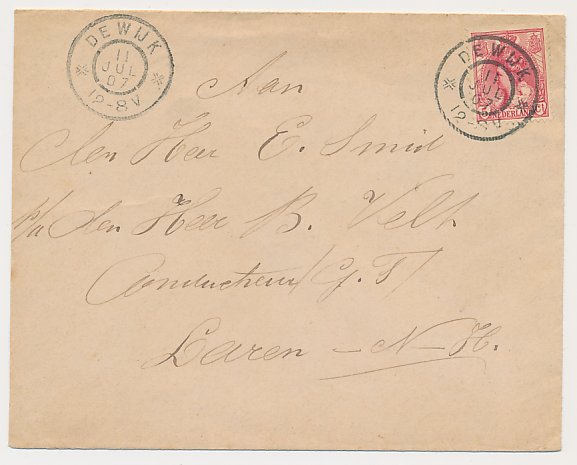 DEWIJK
11
JUL
07
12-8V
DEWIJK
11
JUL
07
12-8V
NEDERLAND
Aan
den Heer E. Smid
p/a den Heer B. Velt
Conducteur (G.T)
Laren - N-H.